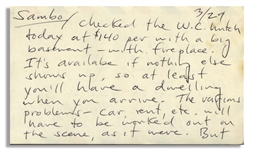 3/27
Sambo / checked the W.C. hutch
today at $140 per with a big
basment - with fireplace.
It's availabe if nothing else
shows up, so at least
you'll have a dwelling
when you arrive. The various
problems - car, rent, etc. will
have to be worked out on
the scene, as it were. But